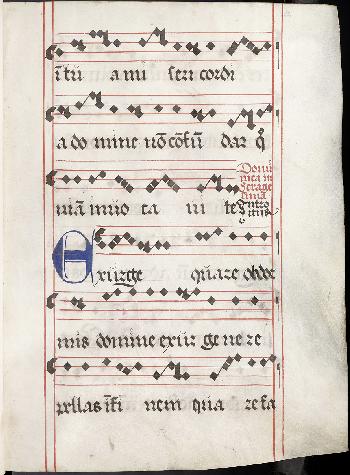 i tu a mi seri cordi
a do mine nō cōfū dar q̄
niā inuo ca ui te
Domi
nica in
Sexage
sima
Intro
itus
Exurge quare obdor
mis domine exur ge ne re
pellas i fi nem qua re fa